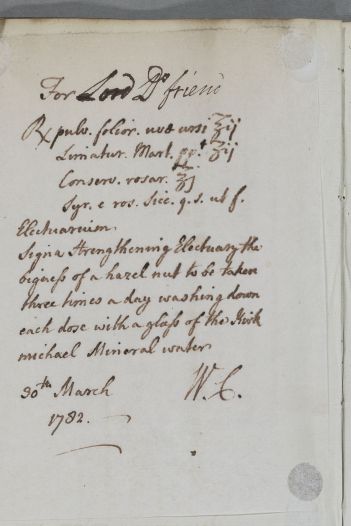 For Lord Ds friend
℞ pulv. folior. uvæ ursi ʒij
Limatur. Mart. ppt ʒij
Conserv. rosar. ℥j
Syr. e ros. sicc. q. s. ut f.
Electuarium.
Signa Strengthening Electuary the
bigness of a hazel nut to be taken
three times a day washing down
each dose with a glass of the Kirk
michael Mineral water
30th March W. C.
1782.